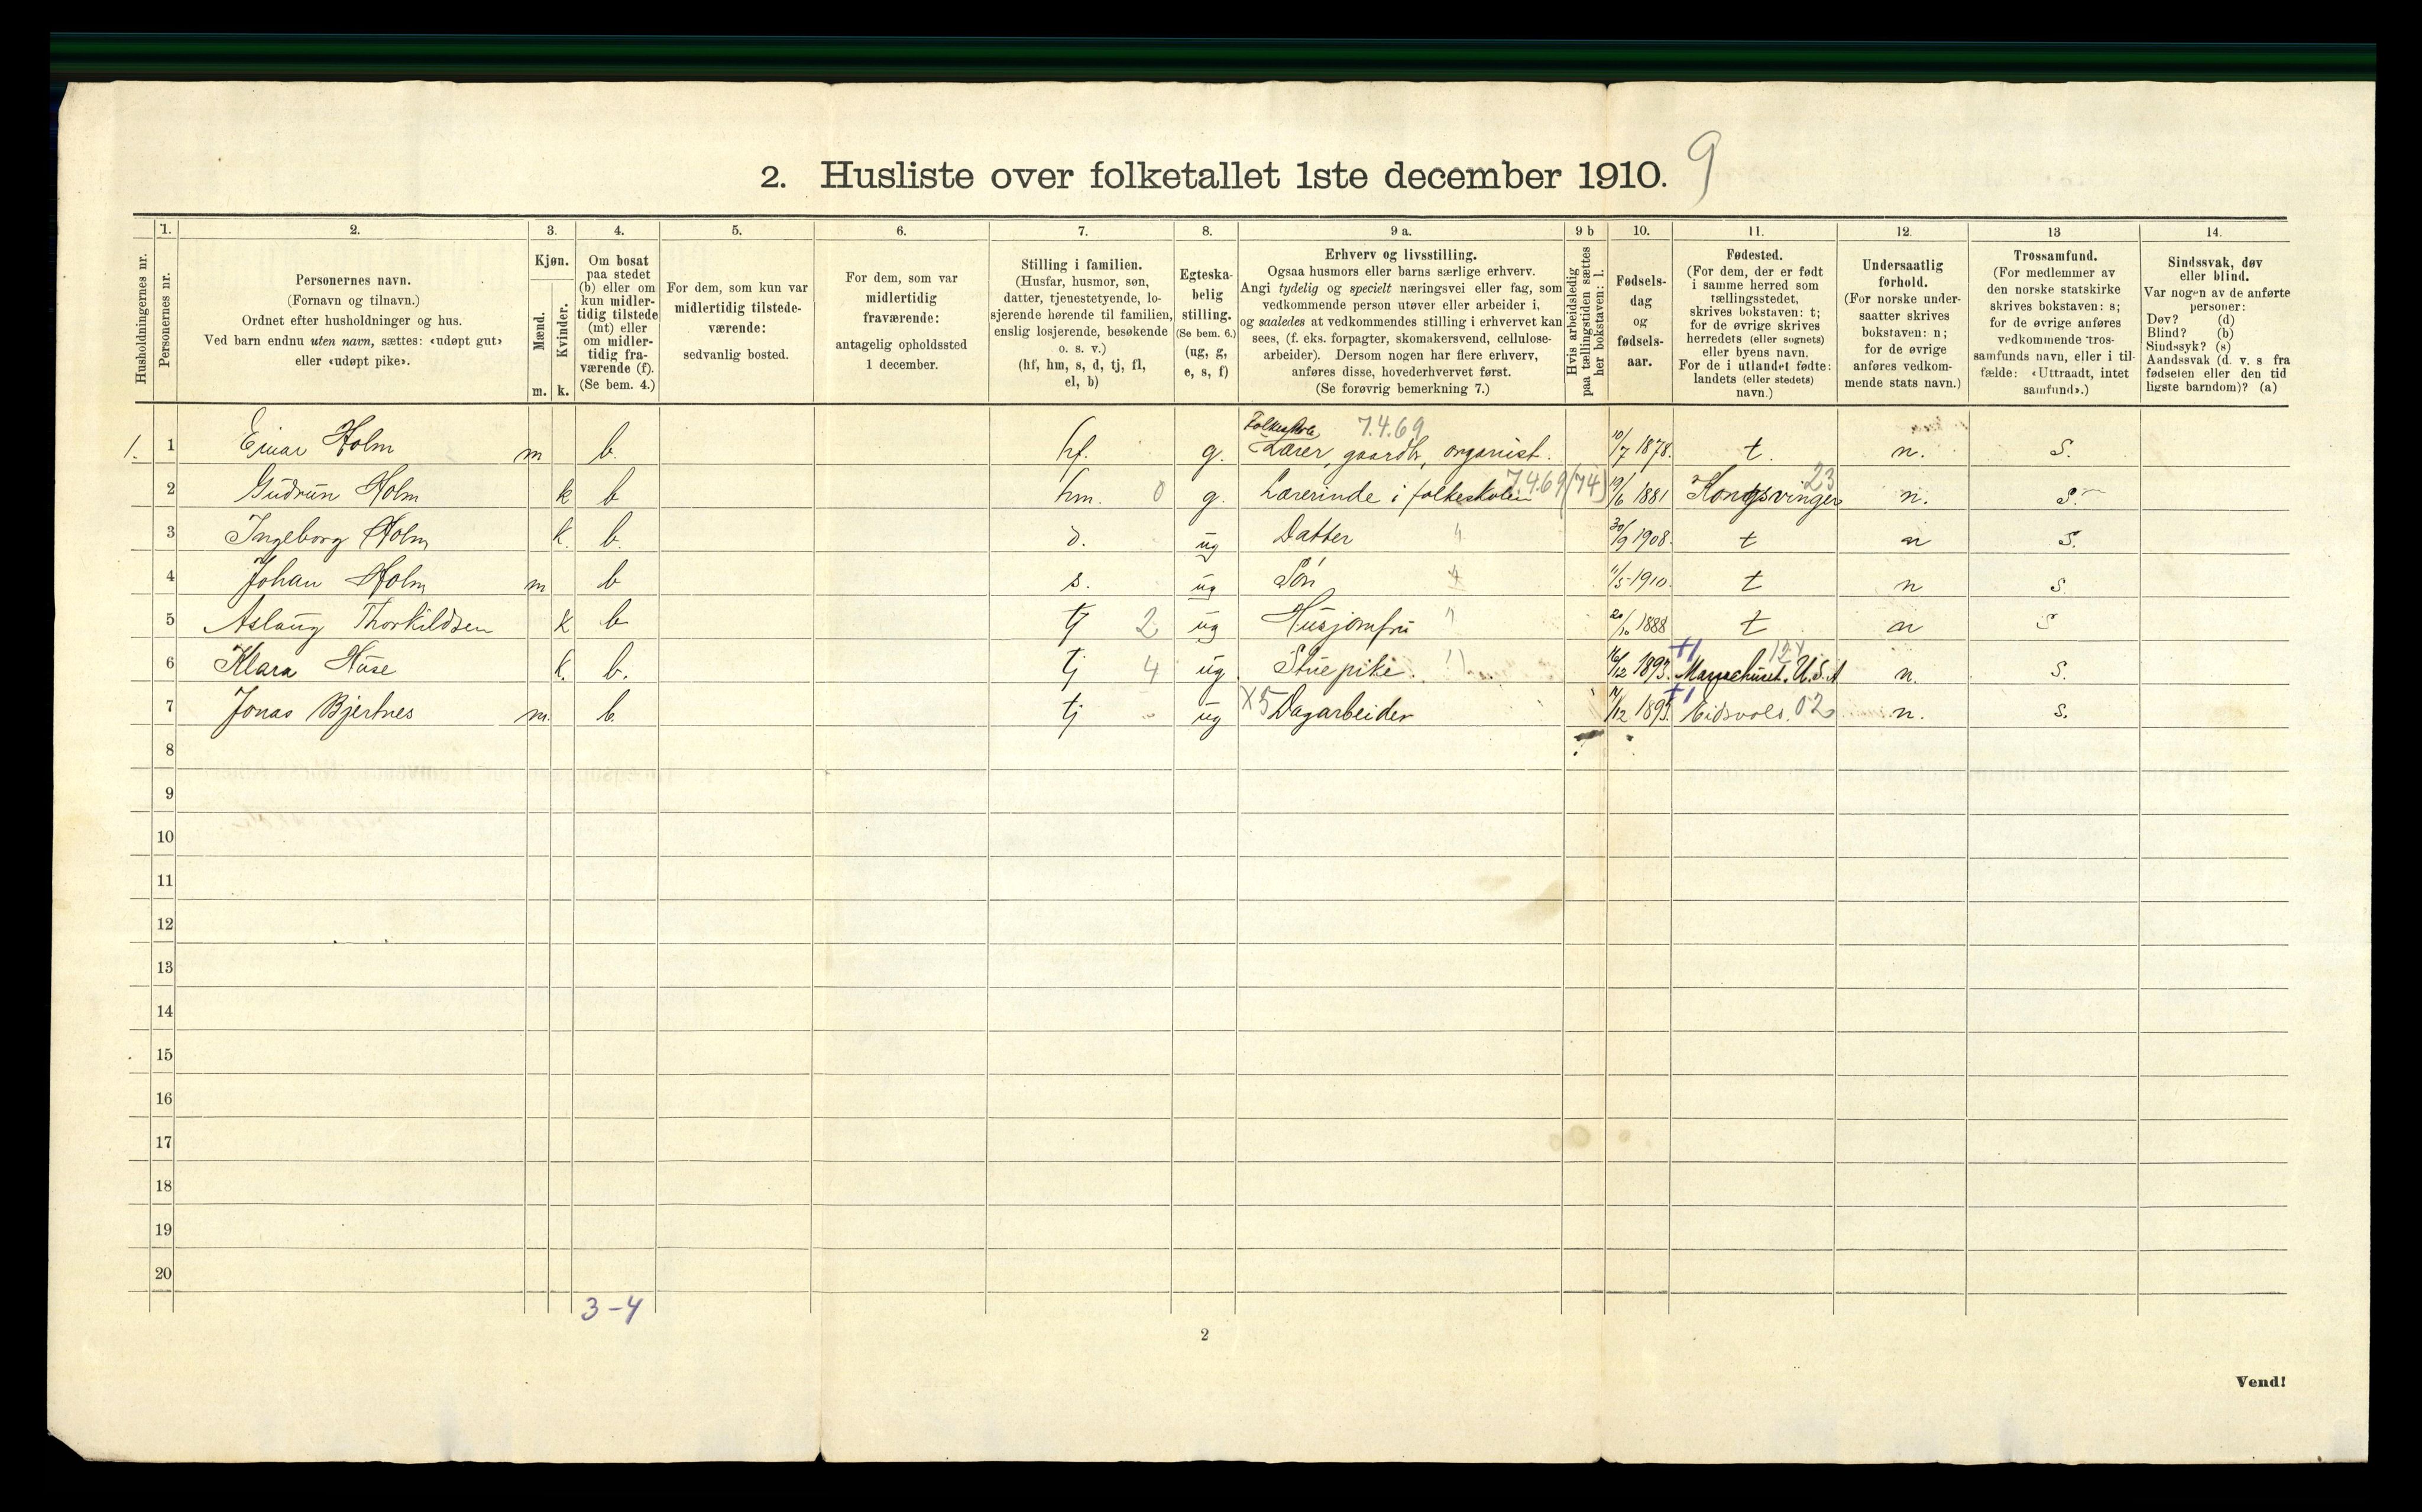 2. Husliste over folketallet 1ste december 1910. 9
1. 2. 3. 4. 5. 6. 7. 8. 9 a. 9 b 10. 11. 12. 13 14.
Husholdningernes nr.
Personernes nr.
Personernes navn.
(Fornavn og tilnavn.)
Ordnet efter husholdninger og hus.
Ved barn endnu uten navn, sættes: «udøpt gut»
eller «udøpt pike».
Kjøn.
Mænd.
Kvinder.
m. k.
Om bosat
paa stedet
(b) eller om
kun midler-
tidig tilstede
(mt) eller
om midler-
tidig fra-
værende (f).
(Se bem. 4.)
For dem, som kun var
midlertidig tilstede-
værende:
sedvanlig bosted.
For dem, som var
midlertidig
fraværende:
antagelig opholdssted
1 december.
Stilling i familien.
(Husfar, husmor, søn,
datter, tjenestetyende, lo-
sjerende hørende til familien,
enslig losjerende, besøkende
o. s. v.)
(hf, hm, s, d, tj, fl,
el, b)
Egteska-
belig
stilling.
(Se bem. 6.)
(ug, g,
e, s, f)
Erhverv og livsstilling.
Ogsaa husmors eller barns særlige erhverv.
Angi tydelig og specielt næringsvei eller fag, som
vedkommende person utøver eller arbeider i,
og saaledes at vedkommendes stilling i erhvervet kan
sees, (f. eks. forpagter, skomakersvend, cellulose-
arbeider). Dersom nogen har flere erhverv,
anføres disse, hovederhvervet først.
(Se forøvrig bemerkning 7.)
Hvis arbeidsledig
paa tællingstiden sættes
her bokstaven: l.
Fødsels-
dag
og
fødsels-
aar.
Fødested.
(For dem, der er født
i samme herred som
tællingsstedet,
skrives bokstaven: t;
for de øvrige skrives
herredets (eller sognets)
eller byens navn.
For de i utlandet fødte:
landets (eller stedets)
navn.)
Undersaatlig
forhold.
(For norske under-
saatter skrives
bokstaven: n;
for de øvrige
anføres vedkom-
mende stats navn.)
Trossamfund.
(For medlemmer av
den norske statskirke
skrives bokstaven: s;
for de øvrige anføres
vedkommende tros-
samfunds navn, eller i til-
fælde: «Uttraadt, intet
samfund».)
Sindssvak, døv
eller blind.
Var nogen av de anførte
personer:
Døv? (d)
Blind? (b)
Sindssyk? (s)
Aandssvak (d. v. s fra
fødselen eller den tid
ligste barndom)? (a)
Folkeskole 7.4.69
1. 1 Einar Holm m b. hf. g. Lærer, gaardbr, organist. 10/7 1878. t. n. S.
2 Gudrun Holm k b hm. 0 g. Lærerinde i folkeskolen 7.4.69 (74) 19/6 1881 Kongsvinger 23 n. S.
3 Ingeborg Holm k. b. d. ug Datter " 30/9 1908. t n S.
4 Johan Holm m b s. ug Søn 11/5 1910. t n S
5 Aslaug Thorkildsen k b tj 2 ug Husjomfru " 20/10 1888 t n S
6 Klara Huse k. b. tj 4 ug. Stuepike. 16/12 1893. Massachuset. U. S. A n. S.
7 Jonas Bjertnes m. b tj ug X5 Dagarbeider 14/12 1893. Eidsvold. 02 n. S.
8
9
10
11
12
13
14
15
16
17
18
19
20
3-4
2
Vend!